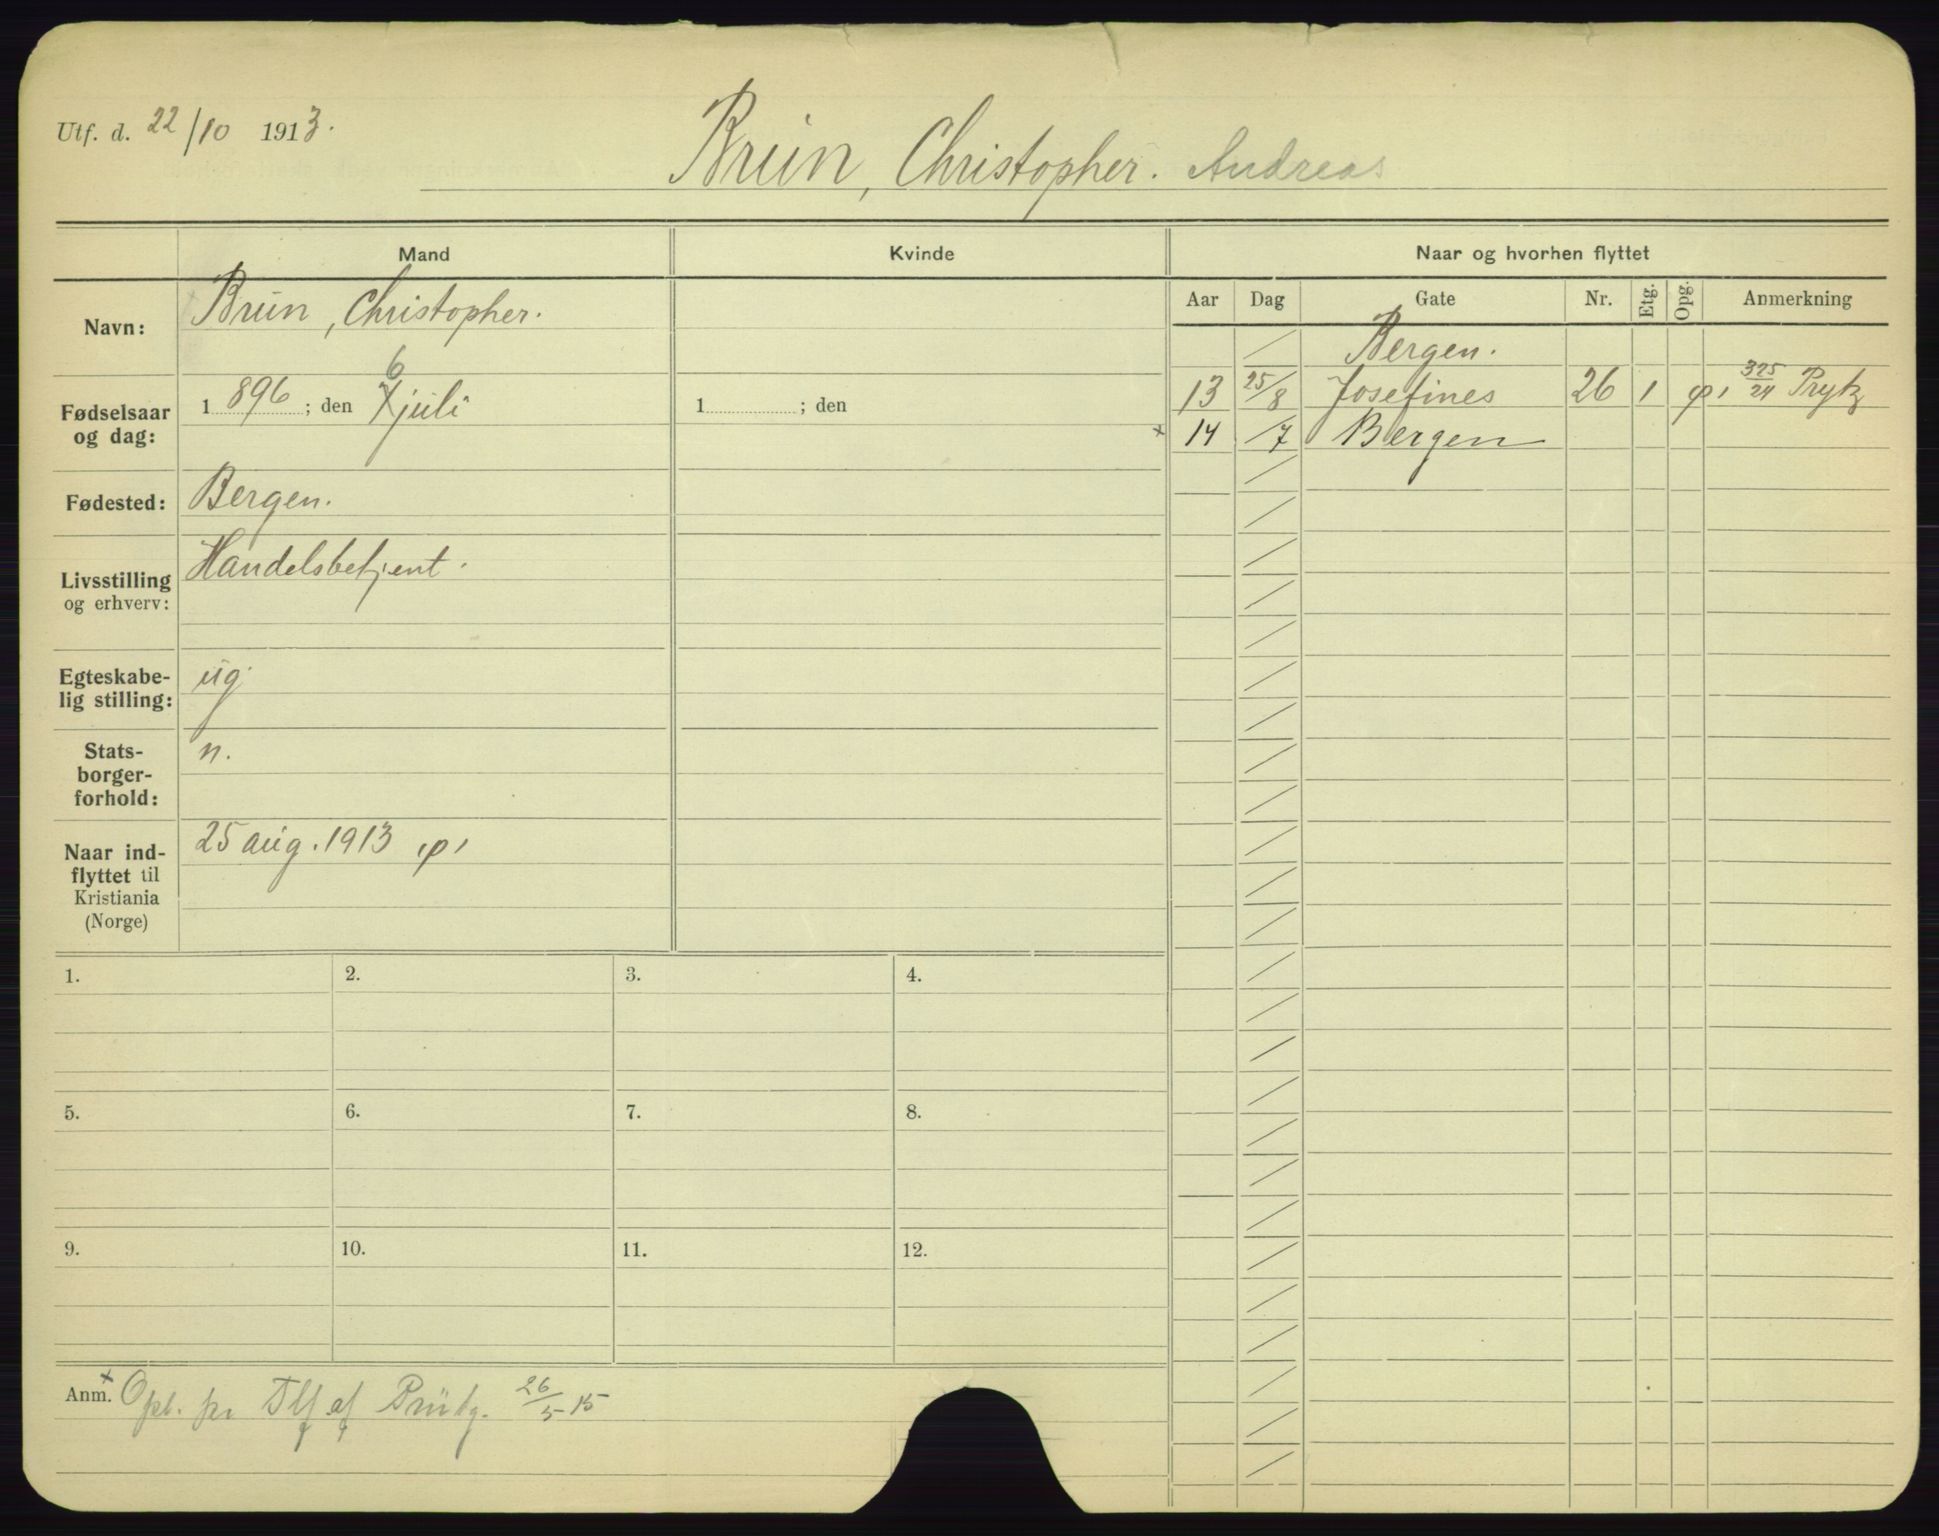 Utf. d. 22/10 1913.
Brun, Christopher. Andreas
Mand
Kvinde
Naar og hvorhen flyttet
Aar Dag Gate Nr. Etg. Opg. Anmerkning
Navn: Brun, Christopher.
Fødselsaar og dag: 1896; den 6 juli
1 ; den
Fødested: Bergen.
Livsstilling og erhverv: Handelsbetjent.
Egteskabe-
lig stilling: ug.
Stats-
borger-
forhold: n.
Naar ind-
flyttet til
Kristiania
(Norge)
25 aug. 1913
Bergen.
13 25/8 Josefines 26 1 325/24
× 14 /7 Bergen
1. 2. 3. 4.
5. 6. 7. 8.
9. 10. 11. 12.
Anm. × Opl. pr Tlf af 26/5 15